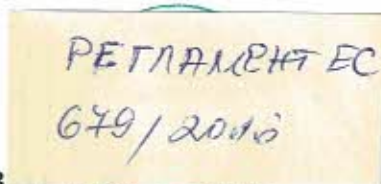 РЕГЛАМЕНТ ЕС
679/2016